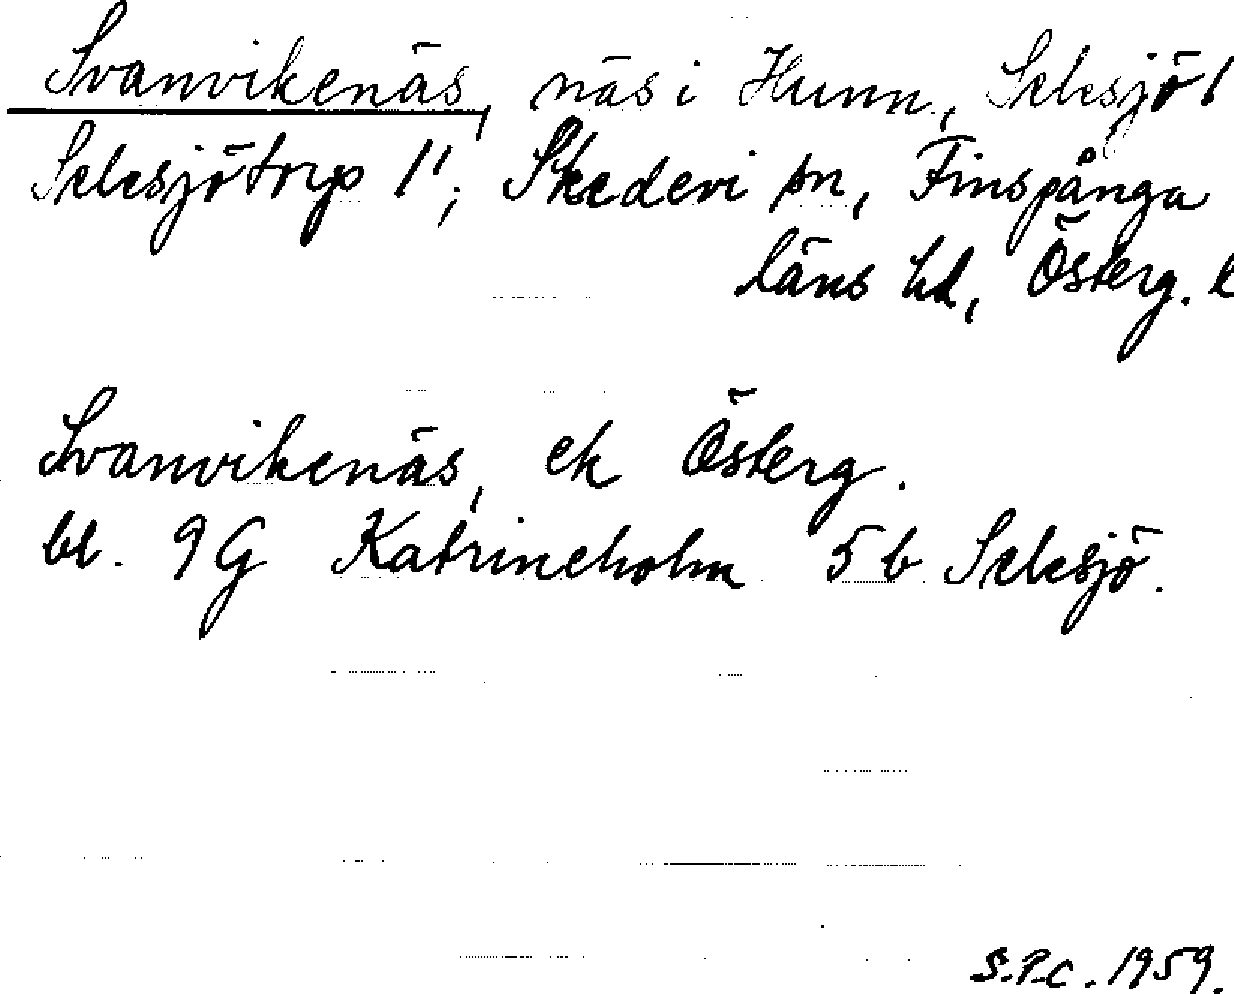 Svanvikenäs, näs i Hunn, Selesjö 1
Selesjötorp 1¹; Skedevi sn, Finspånga
läns hd, Österg. l
Svanvikenäs, ek Österg.
bl. 9G Katrineholm 5b Selesjö.
S.P.C. 1959.